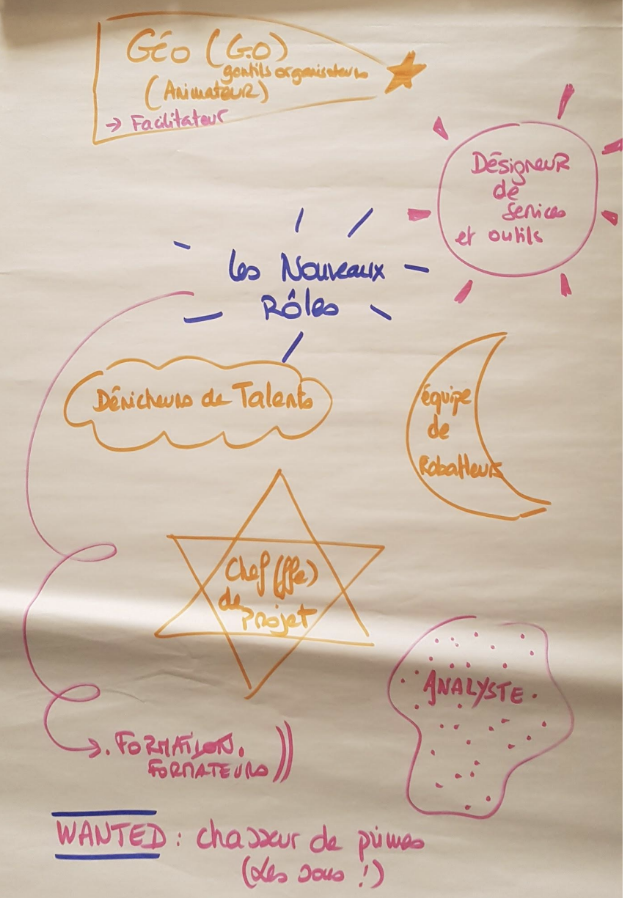 GÉO (G.O)
gentils organisateurs
(ANIMATEUR)
→ Facilitateur
DÉSIGNEUR
de
Services
et outils
Les Nouveaux
RÔLES
Dénicheurs de Talents
équipe
de
Rabatteurs
Chef (ffe)
de
Projet
ANALYSTE.
. FORMATION.
FORMATEURS
WANTED : chasseur de primes
(Les sous !)